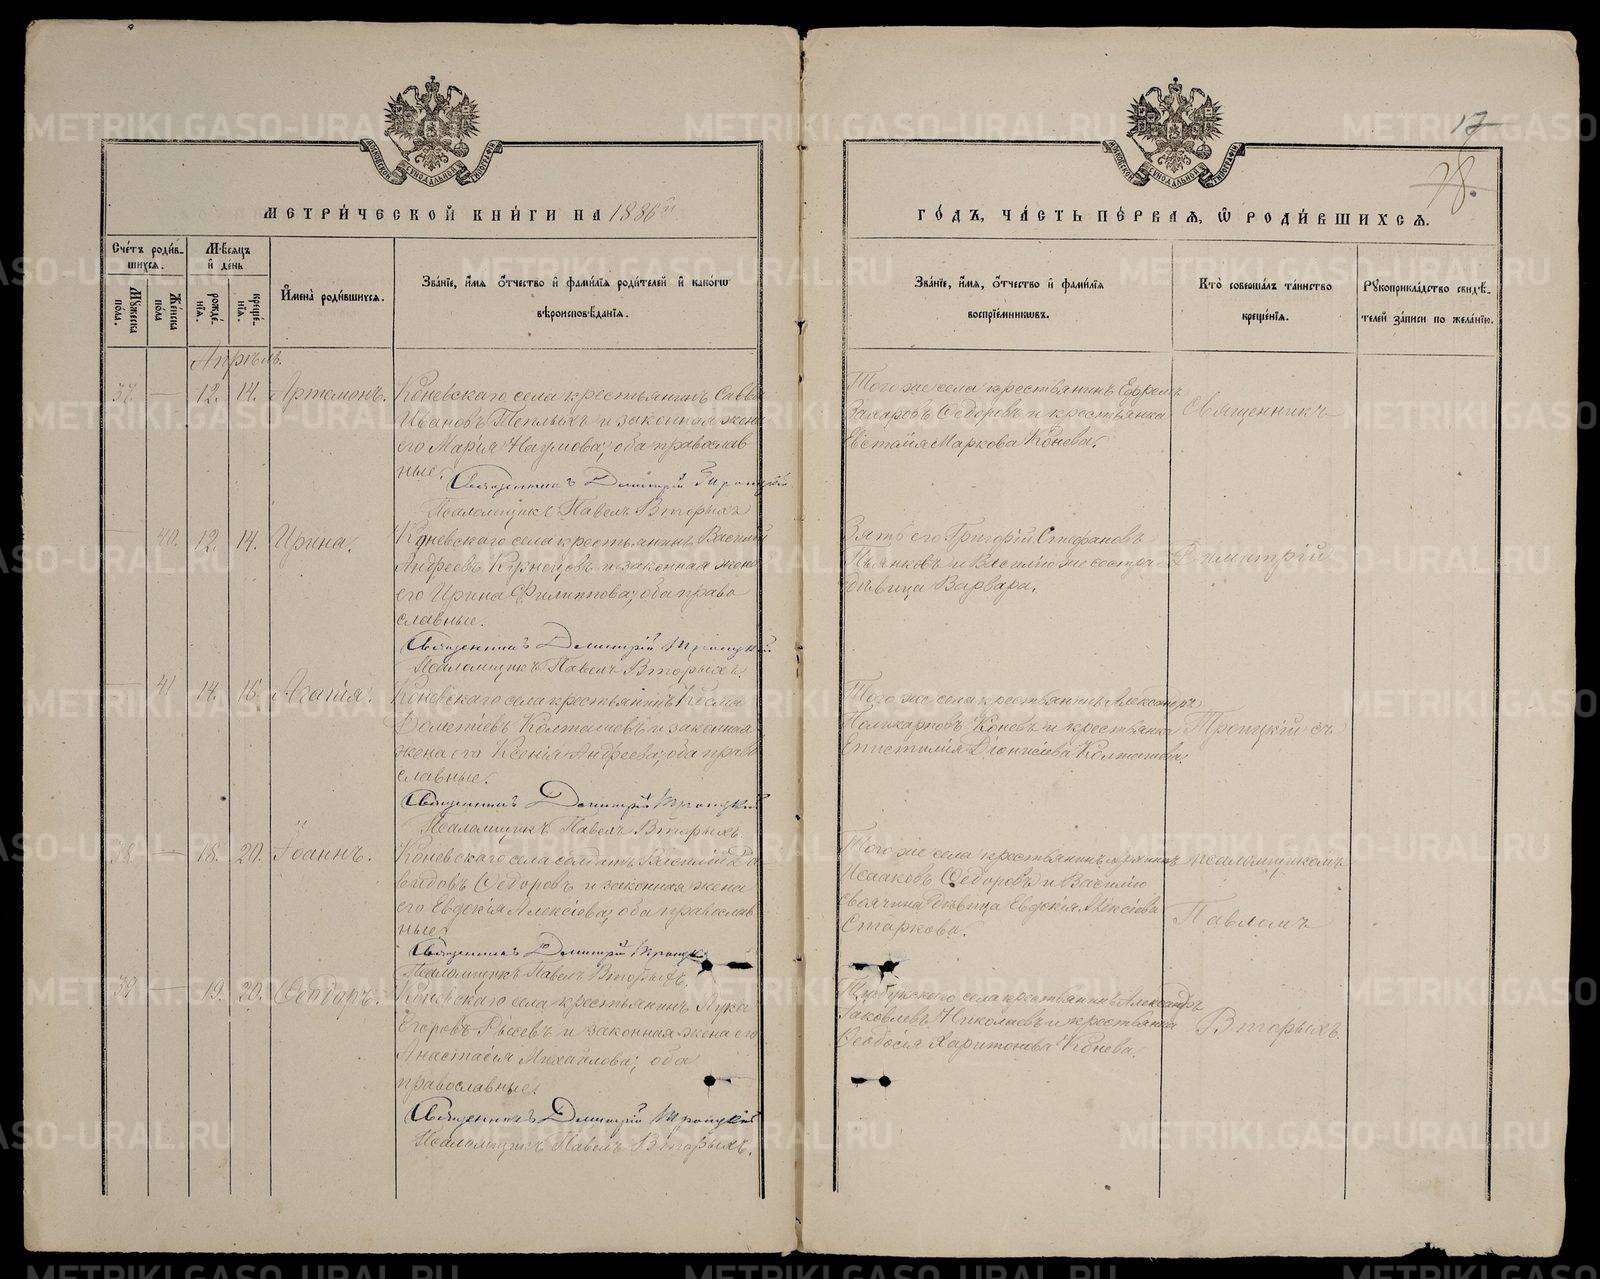 17
78.
МЕТРИ́ЧЕСКОЙ КНИ́ГИ НА 1886й
ГО́ДЪ, ЧА́СТЬ ПЕ́РВАЯ, Ѡ РОДИ́ВШИХСЯ.
Сче́тъ роди́в-
шихся.
Мꙋжеска пола.
Же́нска пола
Мѣсяцъ
и де́нь
рожде́-
нїя.
креще́-
нїя.
Имена̀ роди́вшихся.
Зва́нїе, имя о́тчество и фами́лїя роди́телей и како́гѡ
вѣроисповѣ́данїя.
Зва́нїе, имя, о́тчество и фами́лїя
воспрїе́мникѡвъ.
Кто̀ соверша́лъ та́инство
креще́нїя.
Рꙋкоприкла́дство свидѣ́-
телей за́писи по жела́нїю.
Апрѣль.
37. — 12. 14. Артемонъ. Коневскаго села крестьянинъ Савва
Ивановъ Теплыхъ и законная жена
его Марія Наумова; оба православ
ные.
Священникъ Димитрій Троицкій
Псаломщикъ Павелъ Вторыхъ
Того же села крестьянинъ Ефремъ
Захаровъ Ѳедоровъ и крестьянка
Евстолія Маркова Конева.
Священникъ
— 40. 12. 14. Ирина. Коневскаго села крестьянинъ Василій
Андреевъ Кузнецовъ и законная жена
его Ирина Филиппова; оба право
славные.
Священникъ Димитрій Троицкій
Псаломщикъ Павелъ Вторыхъ.
Зять его Григорій Стефановъ
Пьянковъ и Василію же сестра
дѣвица Варвара.
Димитрій
— 41 14. 16. Агапія. Коневскаго села крестьянинъ Косма
Дометіевъ Колташевъ и законная
жена его Ксенія Андреева; оба право
славные.
Священникъ Димитрій Троицкій
Псаломщикъ Павелъ Вторыхъ.
Того же села крестьянинъ Александръ
Поликарповъ Коневъ и крестьянка
Епистимія Діонисіева Колташева.
Троицкій съ
38. — 18. 20. Іоаннъ. Коневскаго села солдатъ Василій Да
видовъ Ѳедоровъ и законная жена
его Евдокія Алексіева; оба православ
ные.
Священникъ Димитрій Троицк
Псаломщикъ Павелъ Вторыхъ.
Того же села крестьянинъ
Исааковъ Ѳедоровъ и Василію
своячина дѣвица Евдокія Алексіева
Старкова.
псаломщикомъ
Павломъ
39. — 19. 20. Ѳеодоръ. Коневскаго села крестьянинъ Лука
Егоровъ и законная жена его
Анастасія Михайлова; оба
православные.
Священникъ Димитрій Троицкій
Псаломщикъ Павелъ Вторыхъ.
села крестьянинъ Александръ
Іаковлевъ Николаевъ и крестьянка
Ѳеодосія Харитонова Конева.
Вторыхъ.